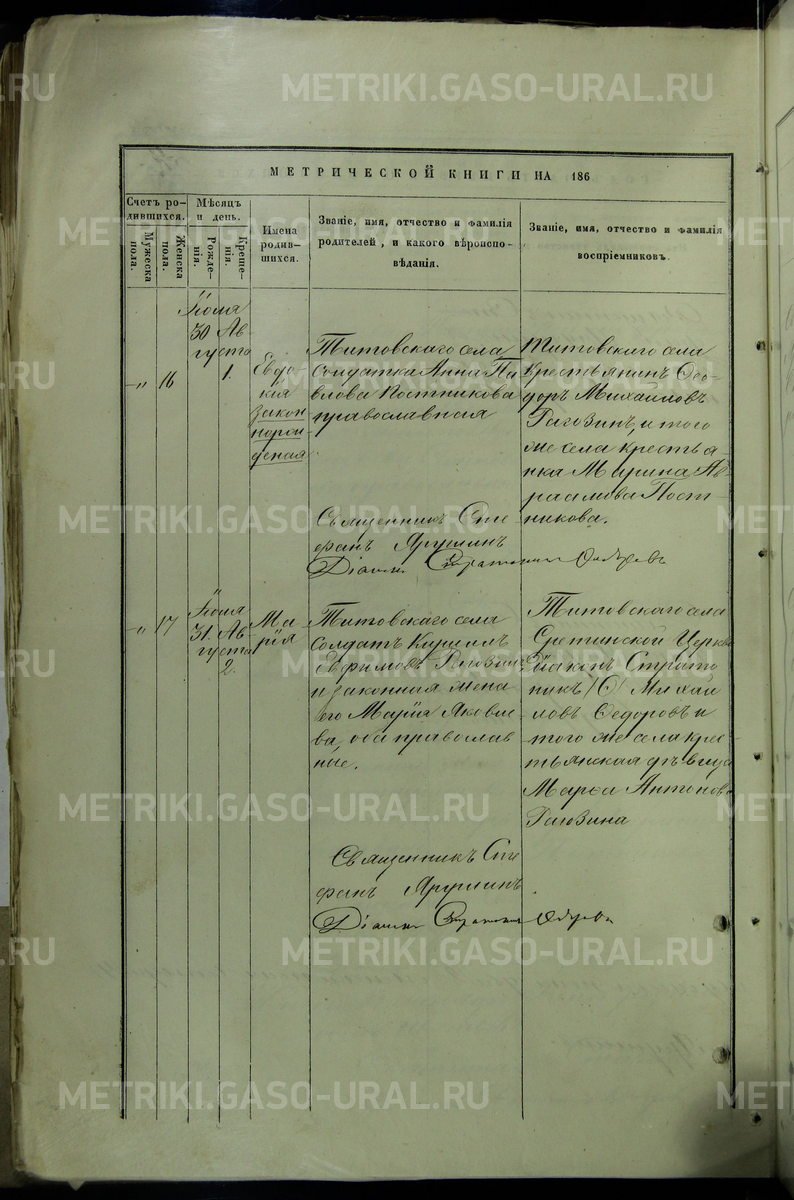 METRIKI.GASO-URAL.RU
МЕТРИЧЕСКОЙ КНИГИ НА 186
Счетъ ро-
дившихся.
Мужеска
пола.
Женска
пола.
Мѣсяцъ
и день.
Рожде-
нія.
Креще-
нія.
Имена
родив-
шихся.
Званіе, имя, отчество и фамилія
родителей, и какого вѣроиспо-
вѣданія.
Званіе, имя, отчество и фамилія
воспріемниковъ.
-„- 16
Іюля
30 Ав-
густа
1.
Евдо-
кия
закон
норож
деная
Титовскаго села
Солдатка Анна Па
влова Постникова
православная
Священникъ Сте
фанъ Ярушинъ
Діаконъ
Титовскаго села
Крестьянинъ Ѳео
доръ Михайловъ
Рагозинъ, и того
же села крестья
нка Марина Ав
раамова Пост
никова.
-„- 17
Іюля
31. Ав-
густа
2.
Ма
рія
Титовскаго села
Солдатъ Кирилъ
Ефимовъ Рагозинъ
и законная жена
его Марія Яковле
ва, оба православ
ные.
Священникъ Сте
фанъ Ярушинъ.
Діаконъ
Титовскаго села
Сретинской Церкви
Діаконъ Страто
никъ Михай
ловъ Федоровъ и
того же села крес
тьянская дѣвица
Марѳа Антонова
Рагозина